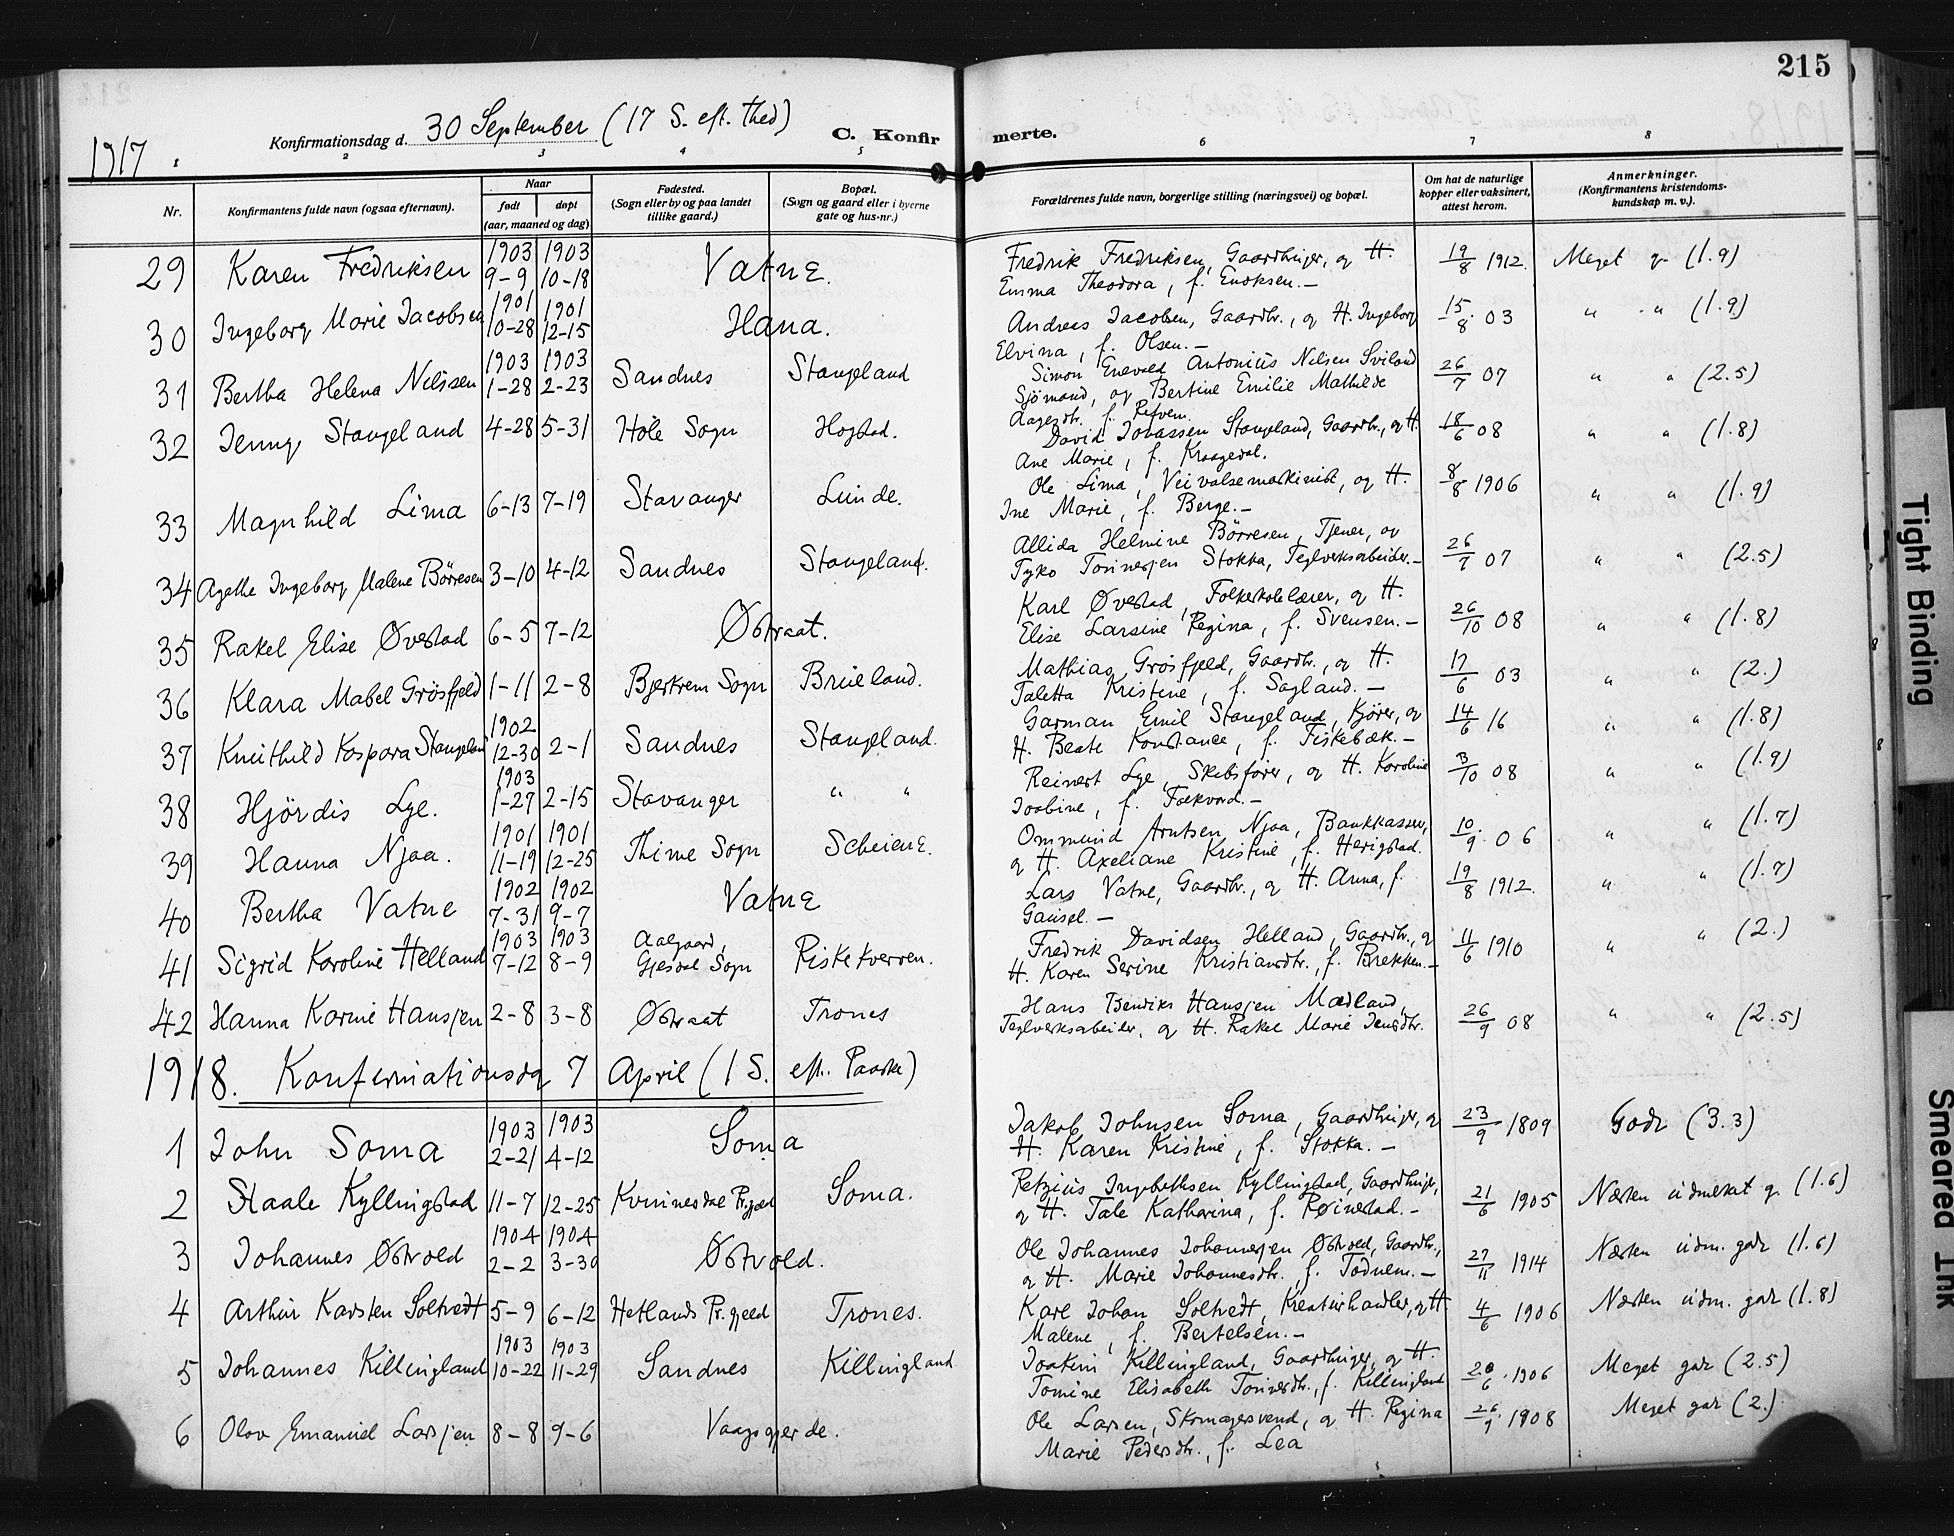 215
1917
Konfirmationsdag d. 30 September (17 S. eft. Thed)
C. Konfirmerte.
1 2 3 4 5 6 7 8
Nr.
Konfirmantens fulde navn (ogsaa efternavn).
Naar
født døpt
(aar, maaned og dag)
Fødested.
(Sogn eller by og paa landet
tillike gaard.)
Bopæl.
(Sogn og gaard eller i byerne
gate og hus-nr.)
Forældrenes fulde navn, borgerlige stilling (næringsvei) og bopæl.
Om hat de naturlige
kopper eller vaksinert,
attest herom.
Anmerkninger.
(Konfirmantens kristendoms-
kundskap m. v.).
29 Karen Fredriksen 1903 9-9 1903 10-18 Vatne. Fredrik Fredriksen, Gaardbruger, og H. 19/8 1912. Meget g. (1.9)
Emma Theodora, f. Enoksen.-
30 Ingeborg Marie Jacobsen 1901 10-28 1901 12-15 Hana. Andreas Jacobsen, Gaardbr., og H. Ingeborg 15/8 03 " " (1.9)
Elvina, f. Olsen.-
31 Bertha Helena Nilssen 1903 1-28 1903 2-23 Sandnes Stangeland Simon Enevald Antonius Nilsen Sviland 26/7 07 " " (2.5)
Sjömand, og Bertine Emilie Mathilde
Aagesdtr. f.
32 Jenny Stangeland 4-28 5-31 Høle Sogn Hogstad. David Jonassen Stangeland, Gaardbr., og H. 18/6 08 " " (1.8)
Ane Marie, f. Kraagedal.
33 Magnhild Lima 6-13 7-19 Stavanger Lunde. Ole Lima, Veivalsemaskinist, og H. 8/8 1906 " " (1.9)
Ine Marie, f. Berge.-
34 Agathe Ingeborg Malene Börresen 3-10 4-12 Sandnes Stangeland. Allida Helmine Börresen, Tjener, og 26/7 07 " " (2.5)
Tyko Tonnesjen Stokka, Teglverksarbeider.-
35 Rakel Elise Øvestad 6-5 7-12 Østraat. Karl Øvestad, Folkeskolelærer, og H. 26/10 08 " " (1.8)
Elise Larsine Regina, f. Svensen.-
36 Klara Mabel Grösfjeld 1-11 2-8 Bjerkrem Sogn Brueland. Mathias Grösfjeld, Gaardbr., og H. 17/6 03 " " (2.)
Taletta Kristine, f. Sagland.-
37 Knuthild Kaspara Stangeland 1902 12-30 2-1 Sandnes Stangeland. Garman Emil Stangeland, Kjører, og 14/6 16 " " (1.8)
H. Beate Konstance, f. Fiskebæk.-
38 Hjördis Lye. 1903 1-27 2-15 Stavanger " " Reinert Lye, Skibsfører, og H. Karoline 3/10 08 " " (1.9)
Joabine, f. Folkvord.-
39 Hanna Njaa. 1901 11-19 1901 12-25 Thime Sogn Scheiene. Ommund Arntsen Njaa, Bankkasser, 10/9 06 " " (1.7)
og H. Axeliane Kristine, f. Herigstad.
40 Bertha Vatne 1902 7-31 1902 9-7 Vatne Lars Vatne, Gaardbr., og H. Anna, f. 19/8 1912. " " (1.7)
Gausel.-
41 Sigrid Karoline Helland 1903 7-12 1903 8-9 Aalgaard, Gjesdal Sogn Riskekverren. Fredrik Davidsen Helland, Gaardbr., og 11/6 1910 " " (2.)
H. Karen Serine Kristiansdtr., f. Brekken.-
42 Hanna Karine Hansjen 2-8 3-8 Østraat Trones Hans Bendiks Hansjen Madland, 26/9 08 " " (2.5)
Teglverksarbeider, og H. Rakel Marie Jensdtr.
1918. Konfirmationsdag 7 April (1 S. eft. Paaske)
1 John Soma 1903 2-21 1903 4-12 Soma Jakob Johnsen Soma, Gaardbruger, og 23/9 1809 Godt (3.3)
H. Karen Kristine, f. Stokka.-
2 Staale Kyllingstad 11-7 12-25 Kvinnesdal Pr.gjæld Soma. Petzius Ingebethsen Kyllingstad, Gaardbruger, 21/6 1905 Næsten udmerket g. (1.6)
og H. Tale Katharina, f. Røinestad.-
3 Johannes Østvold 1904 2-2 1904 3-30 Østvold. Ole Johannes Johannesjen Østvold, Gaardbr., 27/11 1914 Næsten udm. godt (1.6)
og H. Marie Johannesdtr., f. Tödnem.-
4 Arthur Karsten Soltvedt 5-9 6-12 Hetlands Pr.gjeld Trones. Karl Johan Soltvedt, Kreaturhandler, og H. 4/6 1906 Næsten udm. godt (1.8)
Malene, f. Bertelsen.-
5 Johannes Killingland 1903 10-22 1903 11-29 Sandnes Killingland Joakim Killingland, Gaardbruger, og H. 20/6 1906 Meget godt (2.5)
Tomine Elisabeth Tonnesdtr., f. Killingland
6 Olav Emanuel Larsjen 8-8 9-6 Vaagsgjerde. Ole Larsen, Skomagersvend, og H. Regina 26/9 1908 Meget godt (2.)
Marie Pedersdtr., f. Lea
Tight Binding
Smeared Ink